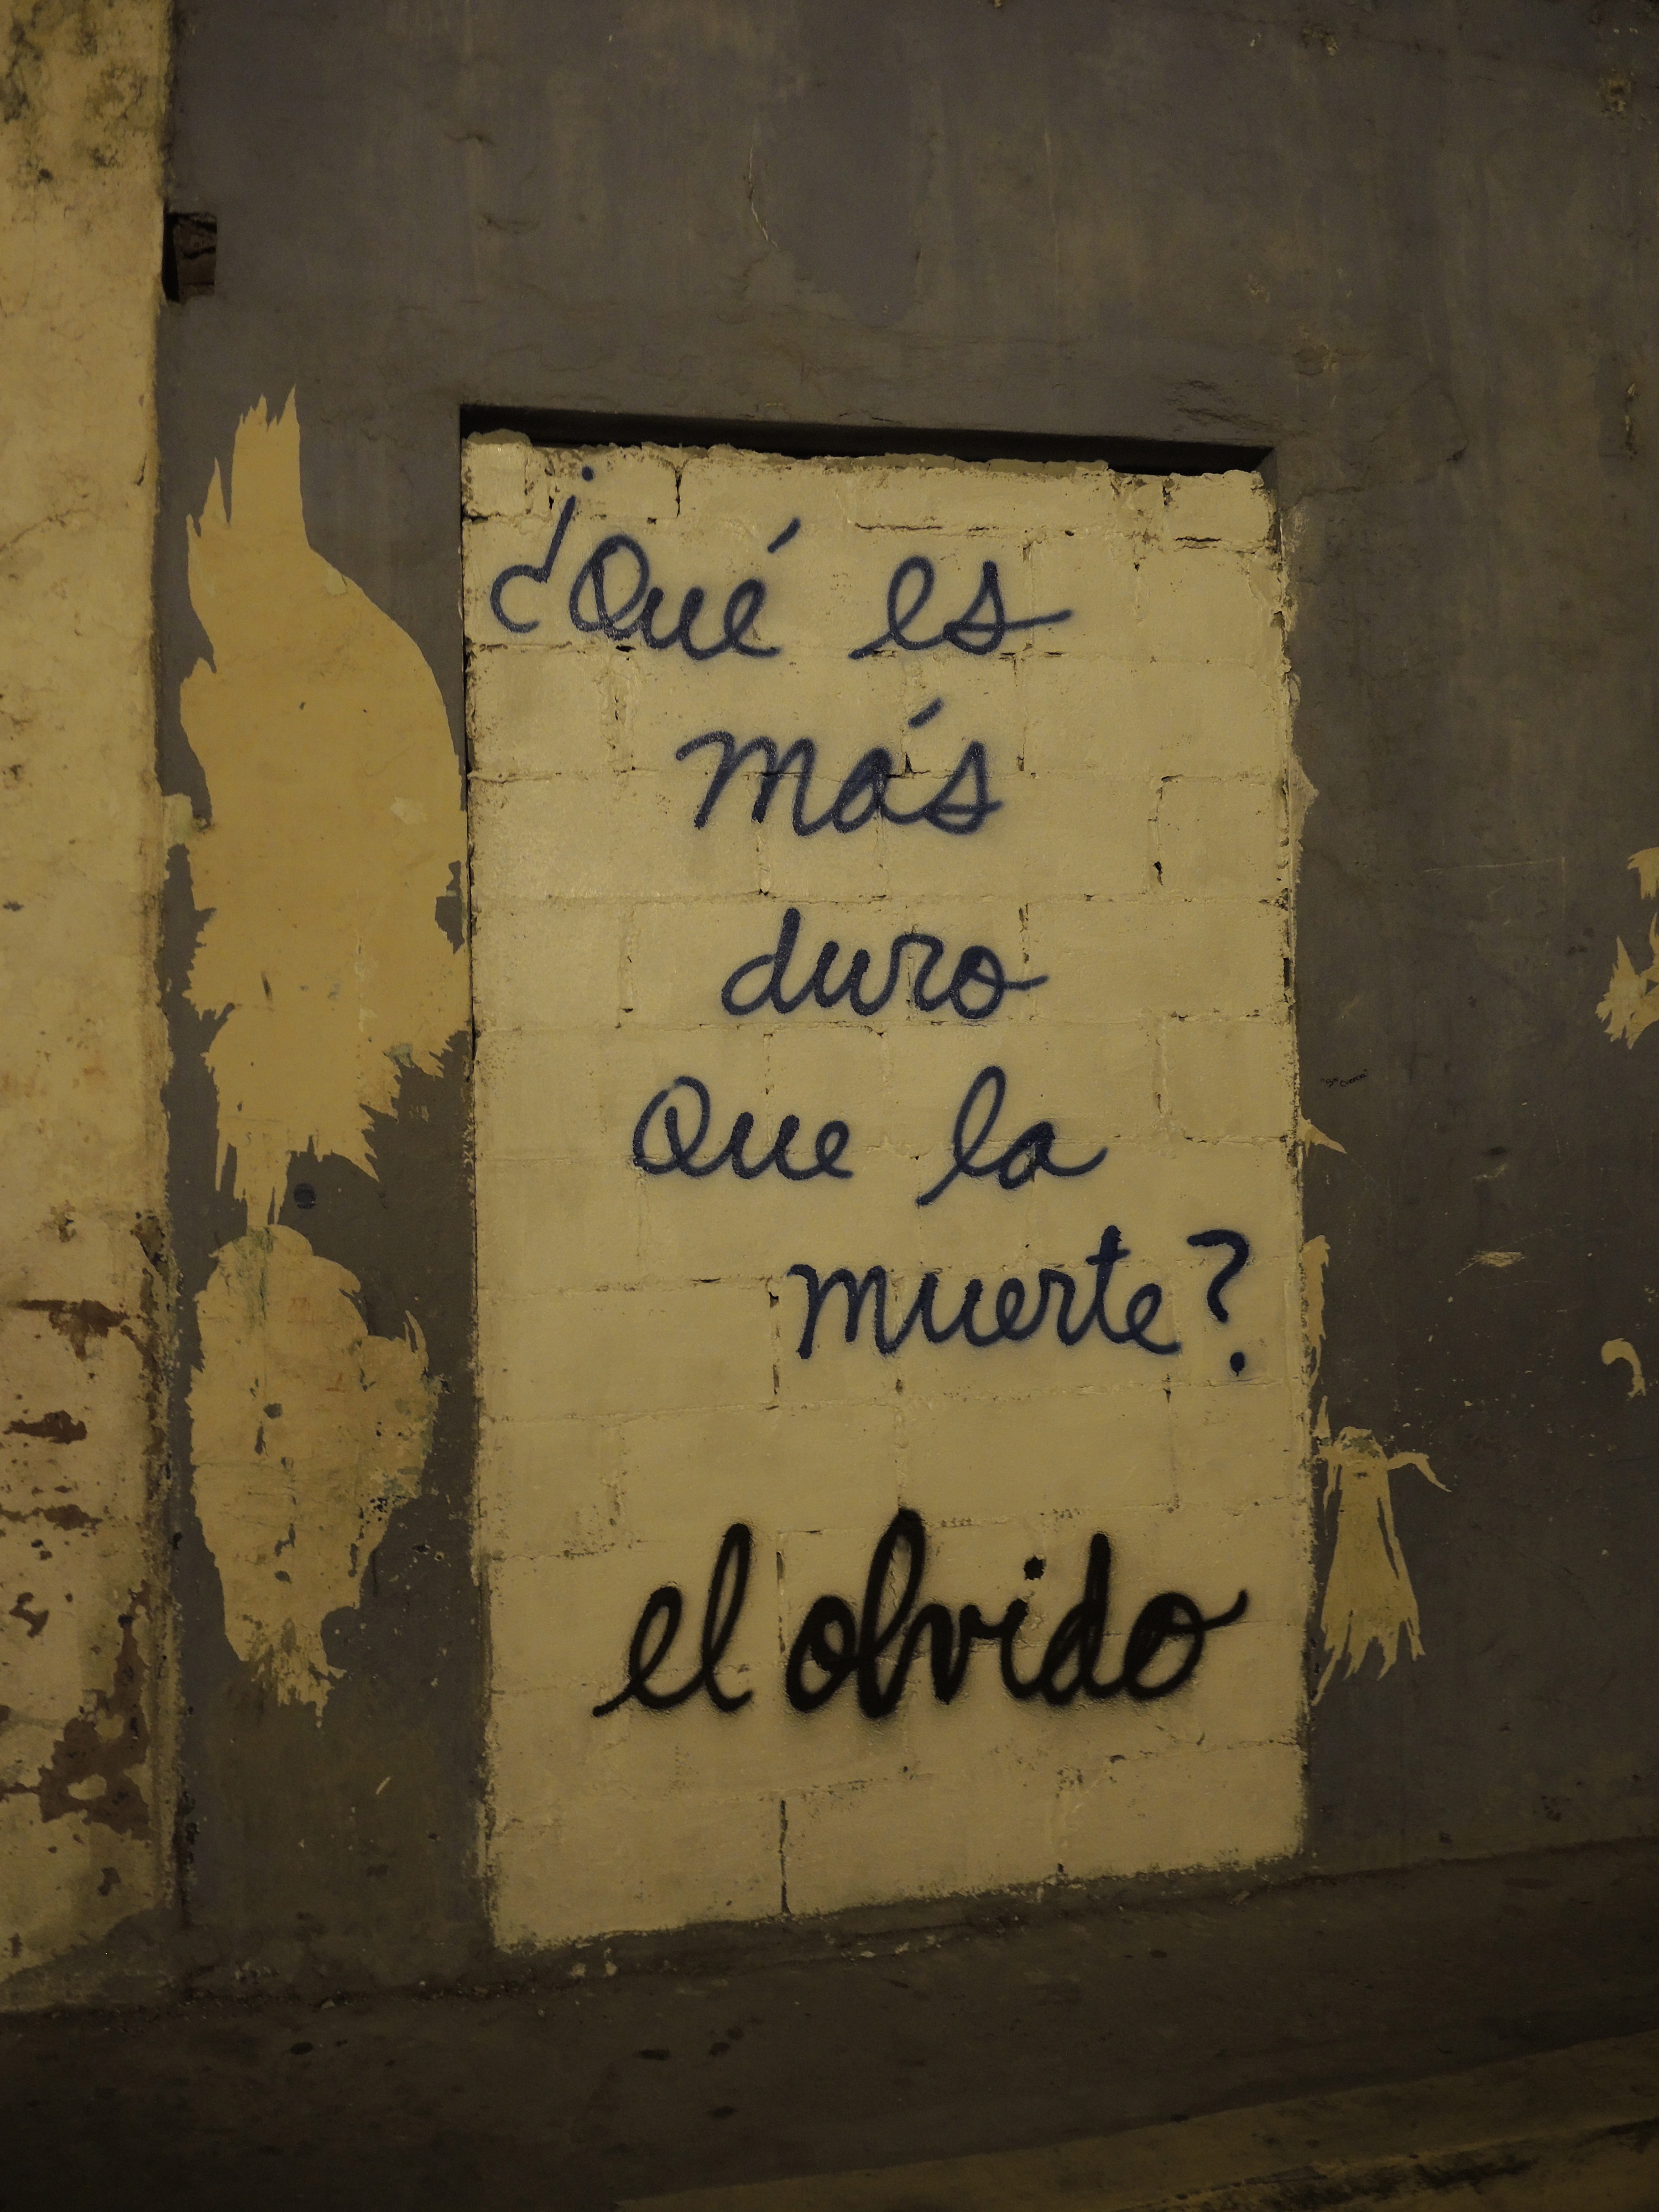 ¿Qué es
más
duro
Que la
muerte?
el olvido